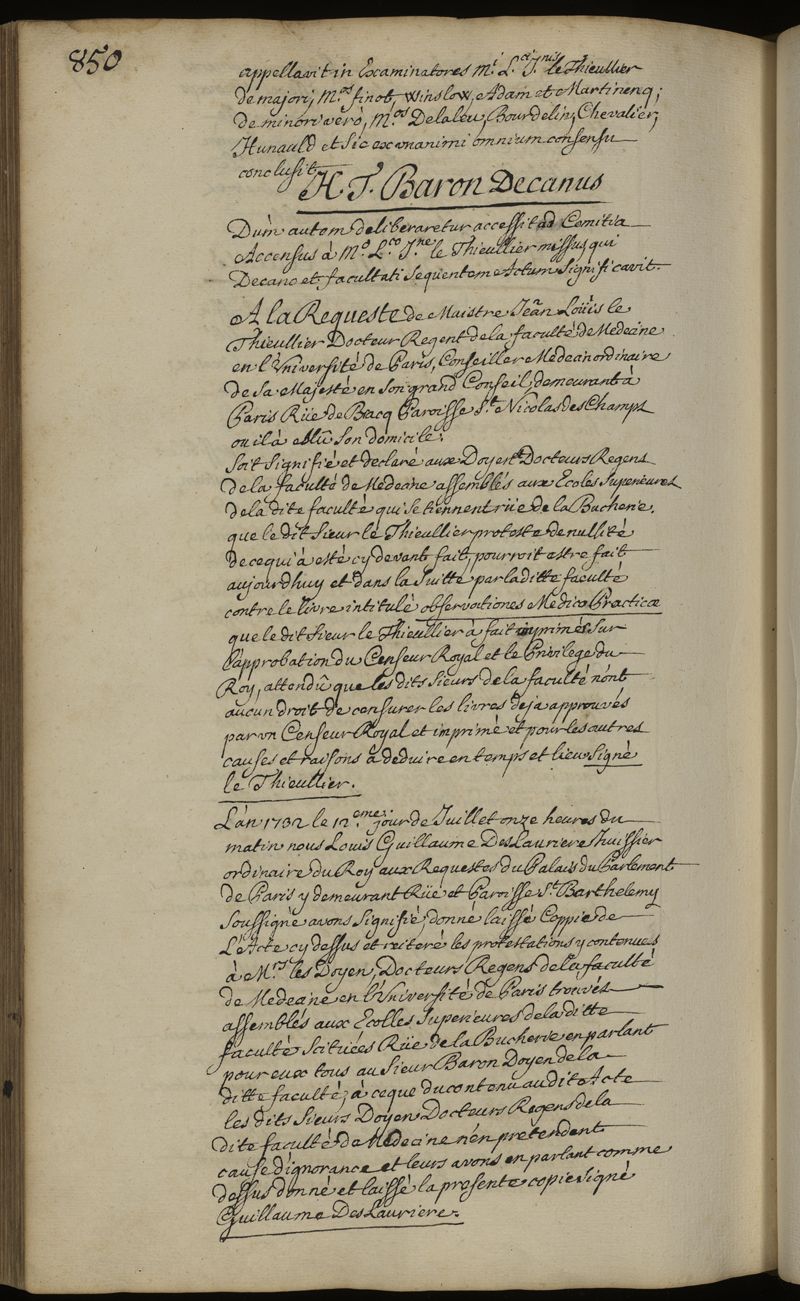 850
appellavit in Examinatores M.i L.ci J.nis le Thieullier
de majori, M.os finot, Winslow, Adam et Martinenq;
de minori verò, M.os Delaleu, Bourdelin, Chevalier,
Hunauld et sic ex unanimi omnium consensu
conclusit
H. T. Baron Decanus
Dum autem deliberaretur accessit ad Comitia
Accensus à M.o L.co J.ne le Thieullier missus qui
Decano et facultati sequentem Actum significavit.
A la Requeste de Maistre Jean Loüis le
Thieullier Docteur Regent de la faculté de Medecine
en l'Université de Paris, Conseiller Medecin ordinaire
de Sa Majesté en son grand Conseil, demeurant à
Paris Rüe de Bracq Paroisse St. Nicolas des Champs
ou il à eslû son domicile.
soit signifié et declaré aux Doyen et Docteurs Regens
de la faculté de Medecine assemblés aux Ecoles Superieures
de la dite faculté qui se tiennent rüe de la Bucherie.
que le dit Sieur le Thieullier proteste de nullité
de ce qui à esté cy devant fait, pourroit estre fait
aujourdhuy et dans la suitte par la ditte faculté
contre le livre intitulé observationes Medico Practicæ
que le dit Sieur le Thieullier à fait imprimés sur
l'approbation du Censeur Royal et le Privilege du
Roy, attendû que les dits Sieurs de la faculté n'ont
aucun droit de censurer les livres deja approuvés
par un Censeur Royal et imprimé et pour les autres
causes et raisons à deduire en temps et lieu signé
le Thieullier.
L'an 1732 le 12.eme jour de Juillet onze heures du
matin nous Louis Guillaume Des Lauriere huissier
ordinaire du Roy aux Requestes du Palais du Parlement
de Paris y demeurant Rüe et Paroisse St. Barthelemy
soussigné avons signifié, donné laissé Coppie de
L'Acte cy dessus et reiteré les protestations y contenues
à M.rs les Doyen, Docteurs Regens de la faculté
de Medecine en l'Université de Paris trouvés
assemblés aux Ecolles Superieures de la ditte
faculté scituées Rüe de la Bucherie en parlant
pour eux tous au Sieur Baron Doyen de la
ditte faculté; à ce que du contenu au dit Acte
les dits Sieurs Doyen Docteurs Regens de la
dite faculté de Medecine n'en pretendent
cause d'ignorance et leurs avons en parlant comme
dessus donné et laissé la presente copie signé
Guillaume Des Lauriere.